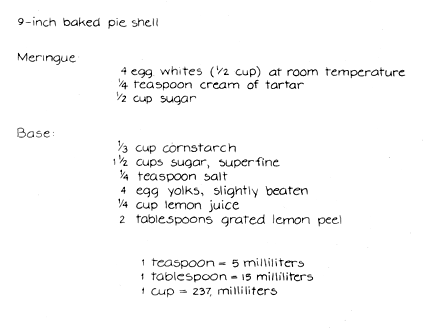 9-inch baked pie shell
Meringue
4 egg whites (1/2 cup) at room temperature
1/4 teaspoon cream of tartar
1/2 cup sugar
Base:
1/3 cup cornstarch
1 1/2 cups sugar, superfine
1/4 teaspoon salt
4 egg yolks, slightly beaten
1/4 cup lemon juice
2 tablespoons grated lemon peel
1 teaspoon = 5 milliliters
1 tablespoon = 15 milliliters
1 cup = 237, milliliters